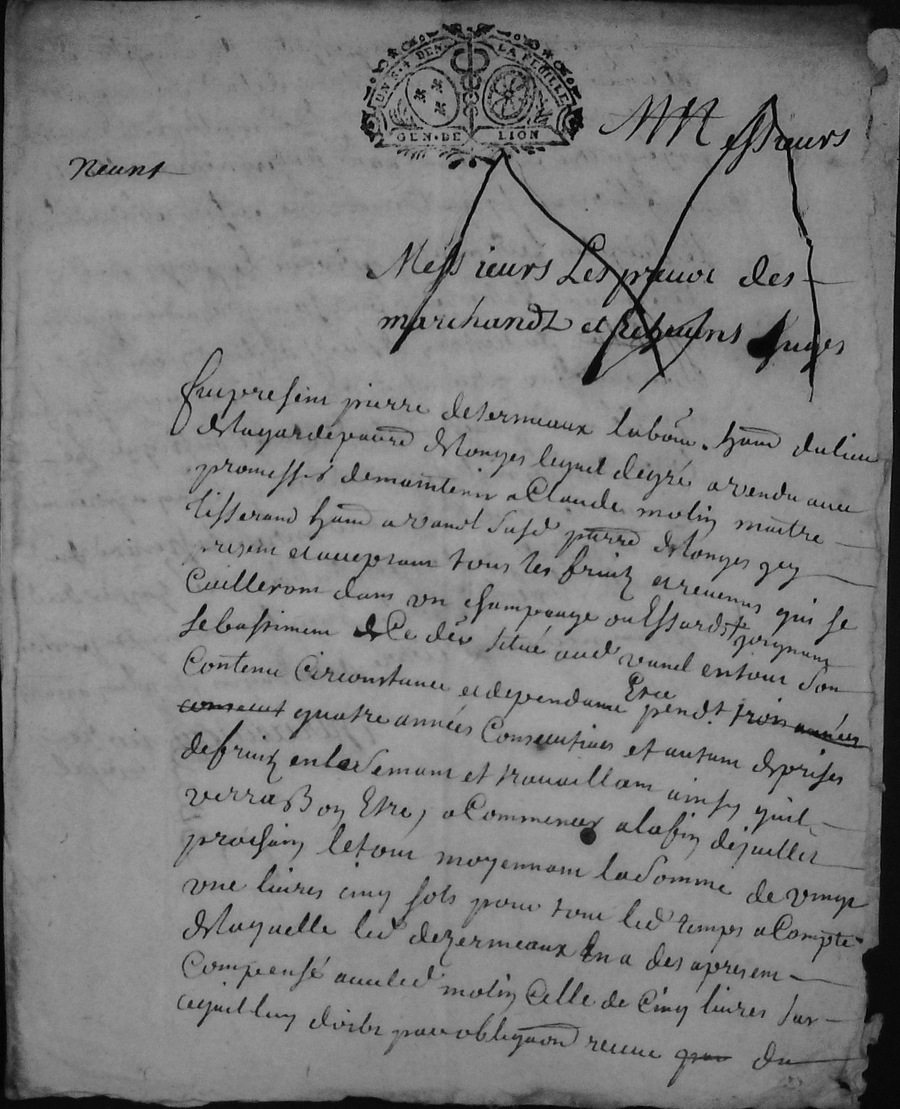 UN S. 4 DEN LA FEUILLE
GEN. DE LION
MM essieurs
Neant
Messieurs Les prevot des
marchandz et Echevins Juges
fut present pierre dezermeaux labour. habt. du lieu
de la garde parre de longes lequel de gré a vendu avec
promesses de maintenir a Claude molin maitre
tisserand habt a vanel susd parre de longes icy
present et acceptant tous les fruitz et revenus qui se
cuilleront dans un champeage ou Essard joignant
le bastiment de Ce der situé aud vanel en tout son
contenu circonstance et dependance Et ce pendt. trois années
consecut quatre années Consecutives et autant de prises
de fruitz en le semant et travaillant ainsy quil
verra Bon Etre, a Commencer a la fin de juillet
prochain, le tout moyennant la somme de vingt
une livres cinq sols pour tout led temps a Compte
de laquelle led dezermeaux En a des a present
Compensé avec led molin Celle de Cinq livres sur
ce quil luy doibt par obligaon receue par du